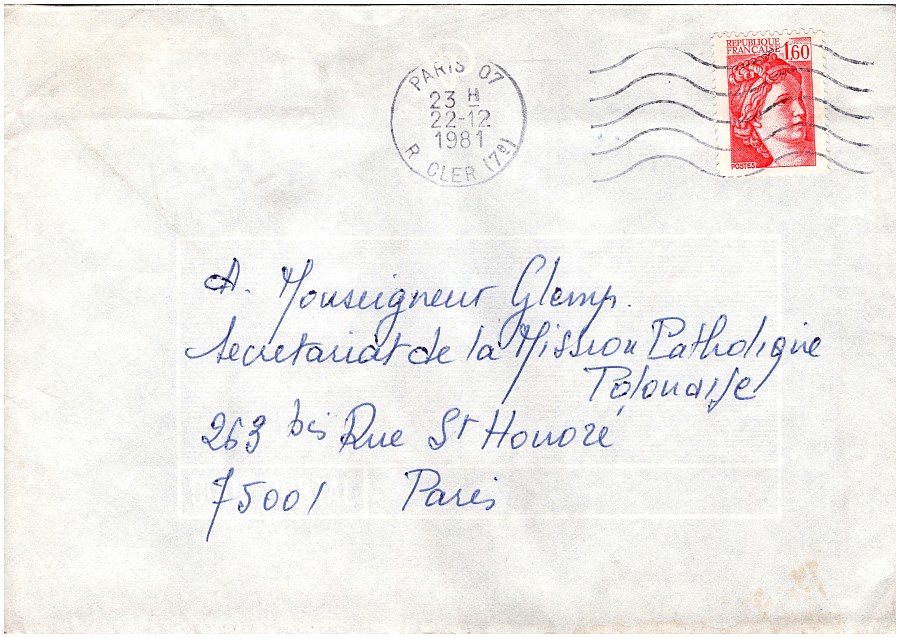 PARIS 07
23 H
22-12
1981
R CLER (7e)
REPUBLIQUE
FRANÇAISE 1,60
POSTES
A. Monseigneur Glemp.
Secretariat de la Mission Catholique
Polonaise
263 bis Rue St Honoré
75001 Paris